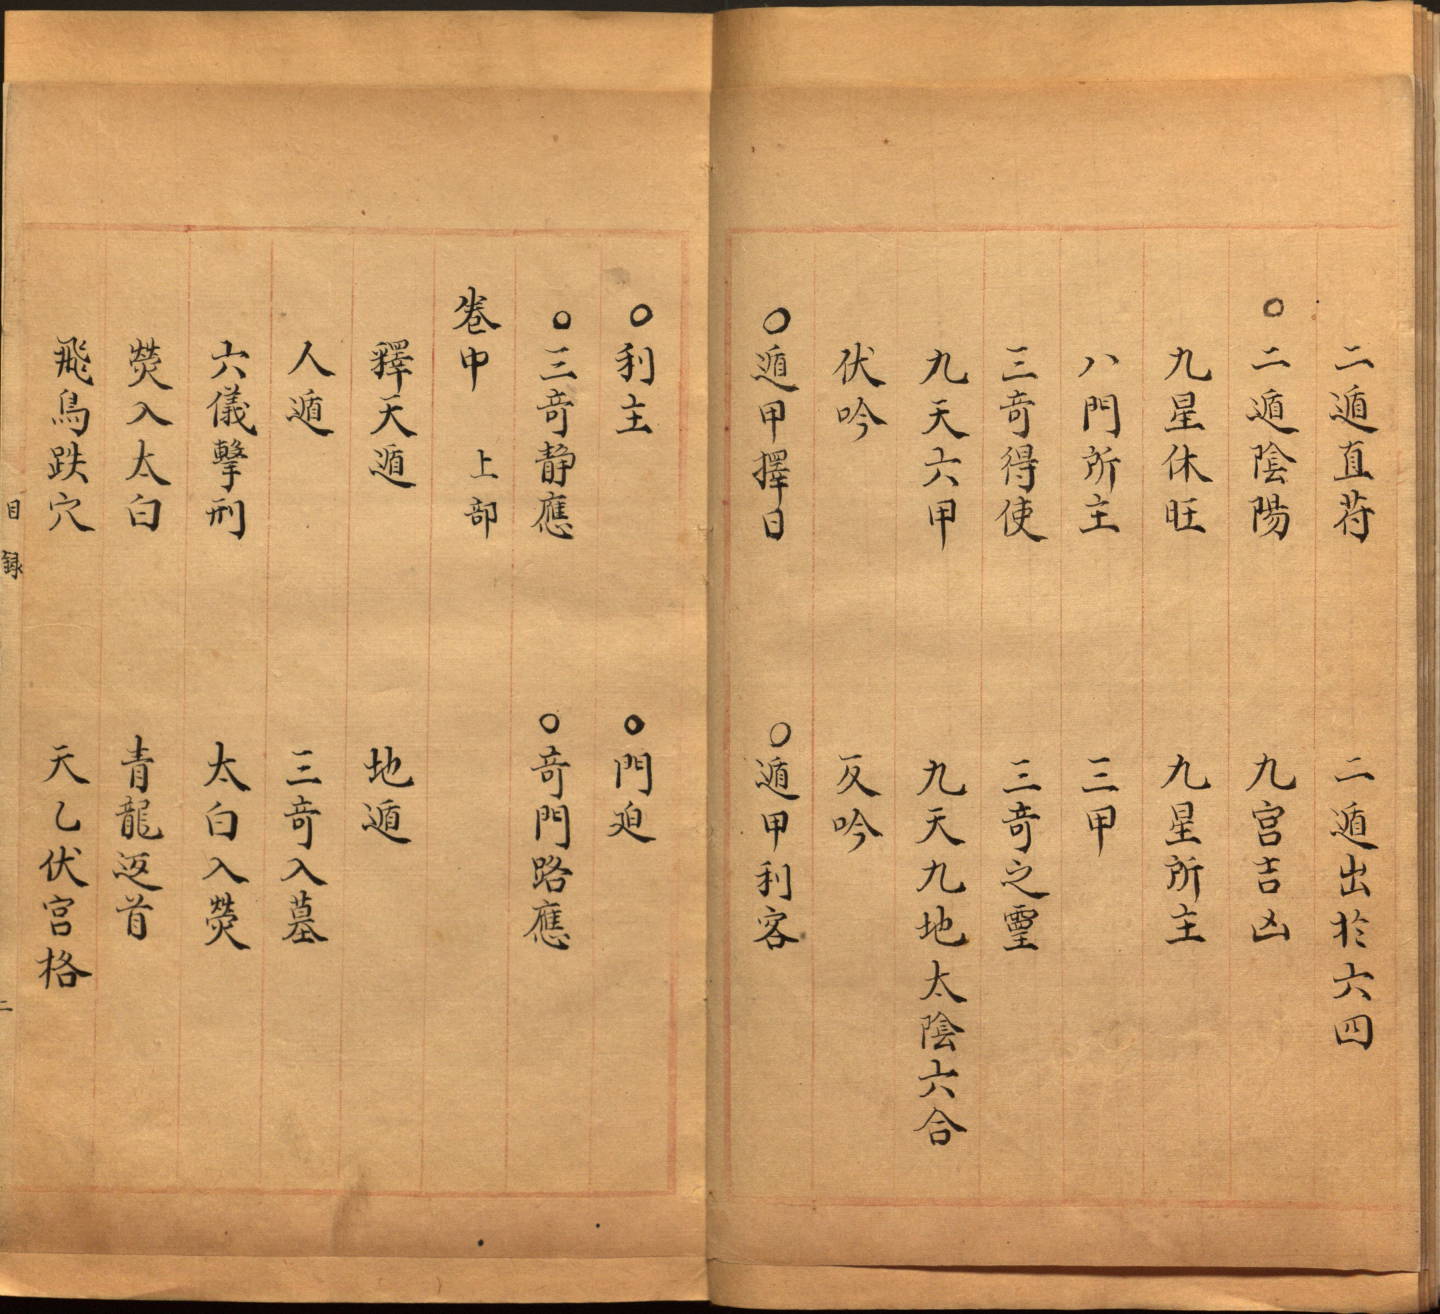 二遁直苻　二遁出於六四
○二遁陰陽　九宮吉凶
九星休旺　九星所主
八門所主　三甲
三奇得使　三奇之靈
九天六甲　九天九地太陰六合
伏吟　反吟
○遁甲擇日　○遁甲利客
○利主　○門迫
○三奇静應　○奇門路應
卷中　上部
釋天遁　地遁
人遁　三奇入墓
六儀擊刑　太白入熒
熒入太白　青龍返首
飛鳥跌穴　天乙伏宮格
目録　二